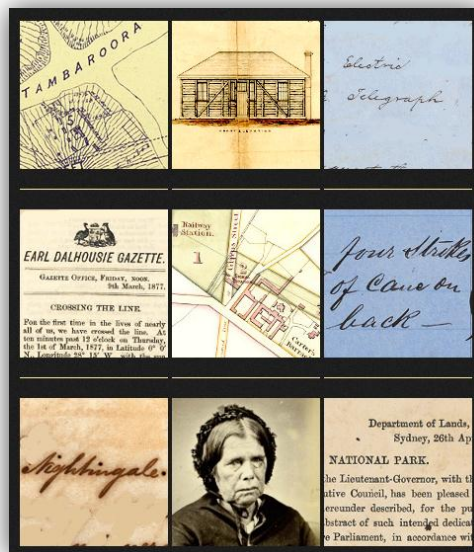 TAMBAROORA
FRONT ELEVATION
Electric
Telegraph
EARL DALHOUSIE GAZETTE.
GAZETTE OFFICE, FRIDAY, NOON.
9th March, 1877.
CROSSING THE LINE.
For the first time in the lives of nearly
all of us, we have crossed the line. At
ten minutes past 12 o'clock on Thursday,
the 1st of March, 1877, in Latitude 0° 0'
N., Longitude 28° 15' W. with the sun
Railway
Station.
1
Gipps Street
Carter's
Barracks
four Strikes
of Cane on
back —
Nightingale.
Department of Lands,
Sydney, 26th Ap
NATIONAL PARK.
he Lieutenant-Governor, with th
utive Council, has been pleased
ereunder described, for the pu
bstract of such intended dedicat
e Parliament, in accordance wi